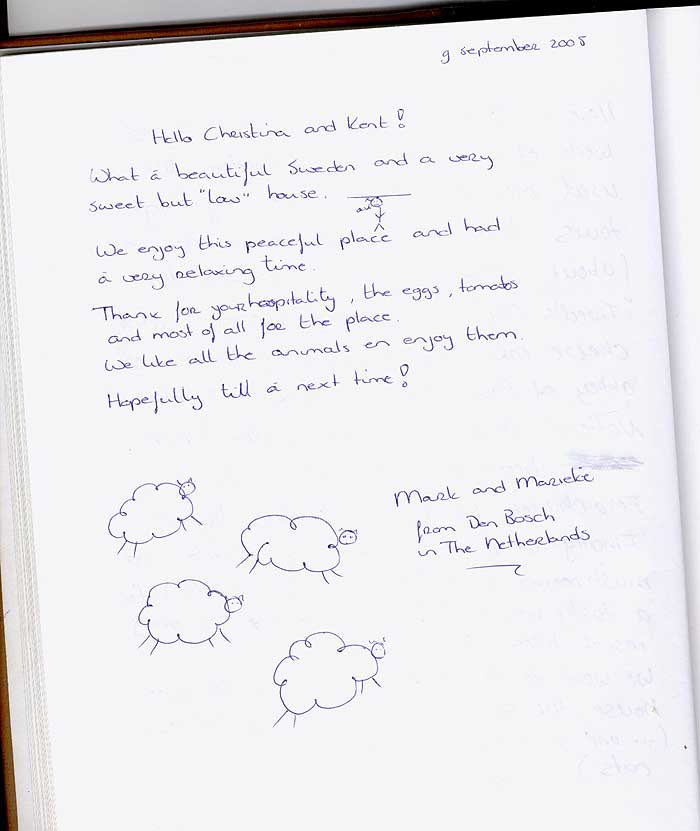 9 september 2005
Hello Christina and Kent!
What á beautiful Sweden and a very
sweet but "low" house.
au
We enjoy this peaceful place and had
á very relaxing time.
Thank for your hospitality, the eggs, tomatos
and most of all for the place.
We like all the animals en enjoy them.
Hopefully till á next time!
Mark and Marieke
from Den Bosch
in The Netherlands